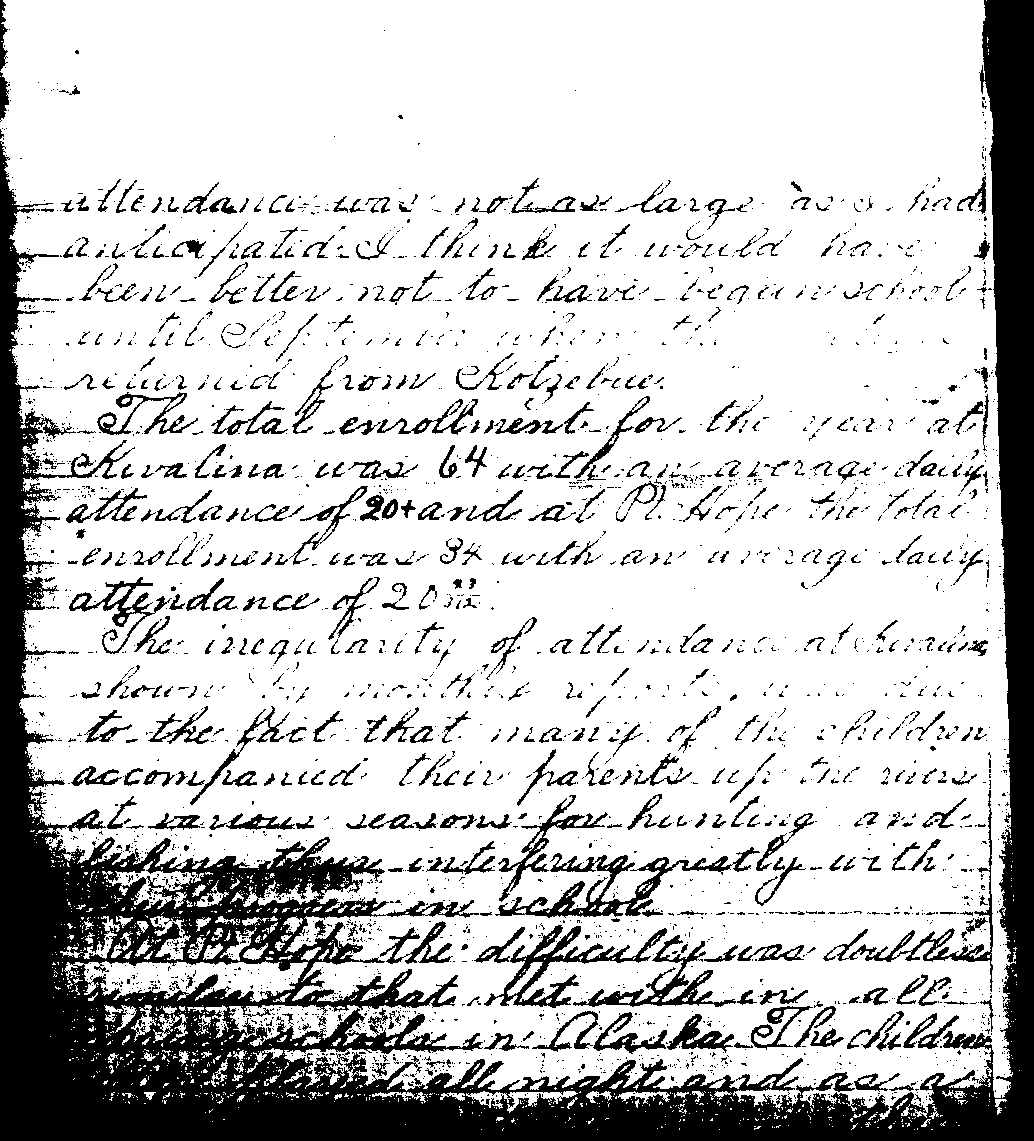 attendance was not as large as I had
anticipated. I think it would have
been better not to have begun school
until September when the
returned from Kotzebue.
The total enrollment for the year at
Kivalina was 64 with an average daily
attendance of 20+ and at Pt. Hope the total
enrollment was 34 with an average daily
attendance of 20
The irregularity of attendance at Kivalina
shown by monthly reports, was due
to the fact that many of the children
accompanied their parents up the rivers
at various seasons for hunting and
fishing thus interfering greatly with
their progress in school.
At Pt. Hope the difficulty was doubtless
similar to that met with in all
spring schools in Alaska. The children
played all night and as a